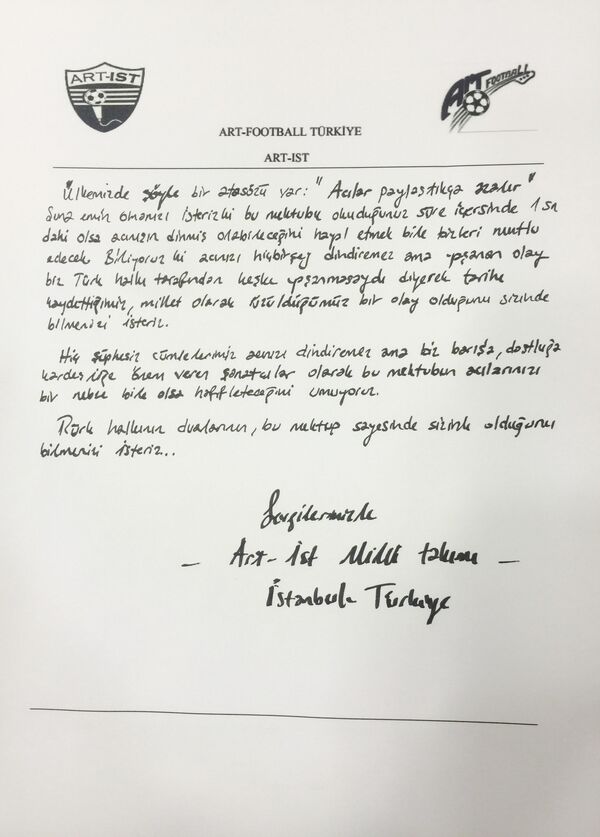 ART-IST
ART FOOTBALL
ART-FOOTBALL TÜRKİYE
ART-IST
Ülkemizde şöyle bir atasözü var: "Acılar paylaştıkça azalır"
Şuna emin olmanızı isteriz ki bu mektubu okuduğunuz süre içersinde 1 sn
dahi olsa acınızın dinmiş olabileceğini hayal etmek bile bizleri mutlu
edecek. Biliyoruz ki acınızı hiçbirşey dindiremez ama yaşanan olay
biz Türk halkı tarafından keşke yaşanmasaydı diyerek tarihe
kaydettiğimiz, millet olarak üzüldüğümüz bir olay olduğunu sizinde
bilmenizi isteriz.
Hiç şüphesiz cümlelerimiz acınızı dindiremez ama biz barışa, dostluğa
kardeşliğe önem veren sanatçılar olarak bu mektubun acılarınızı
bir nebze bile olsa hafifleteceğini umuyoruz.
Türk halkının dualarının, bu mektup sayesinde sizinle olduğunu
bilmenizi isteriz...
Sevgilerimizle
- Art-İst Milli takımı -
İstanbul Türkiye